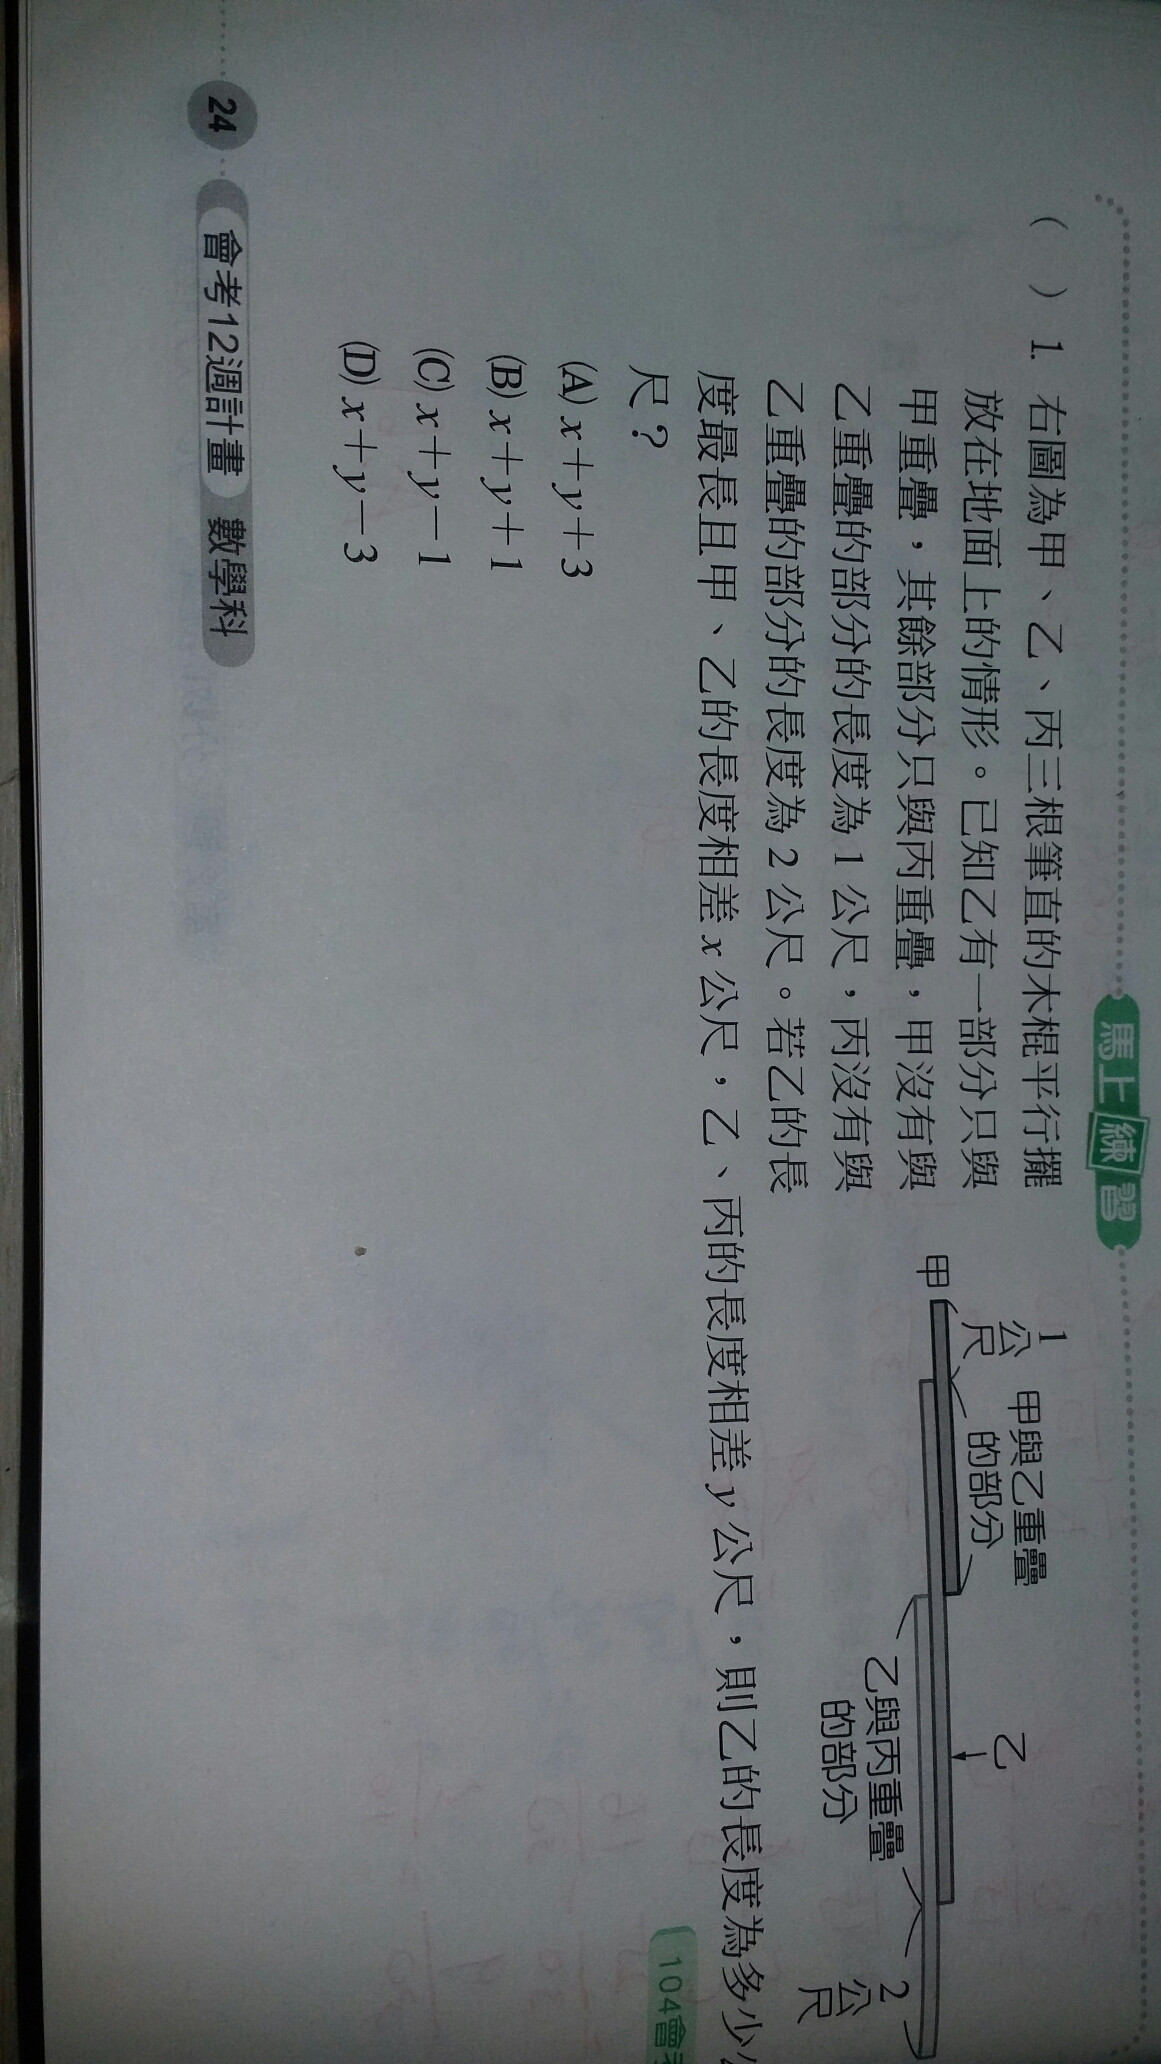 馬上練習
（　）1. 右圖為甲、乙、丙三根筆直的木棍平行擺
放在地面上的情形。已知乙有一部分只與
甲重疊，其餘部分只與丙重疊，甲沒有與
乙重疊的部分的長度為 1 公尺，丙沒有與
乙重疊的部分的長度為 2 公尺。若乙的長
度最長且甲、乙的長度相差 x 公尺，乙、丙的長度相差 y 公尺，則乙的長度為多少公
尺？
(A) x＋y＋3
(B) x＋y＋1
(C) x＋y－1
(D) x＋y－3
1
公
尺
甲與乙重疊
的部分
乙
甲
乙與丙重疊
的部分
2
公
尺
104會考
24 會考12週計畫 數學科